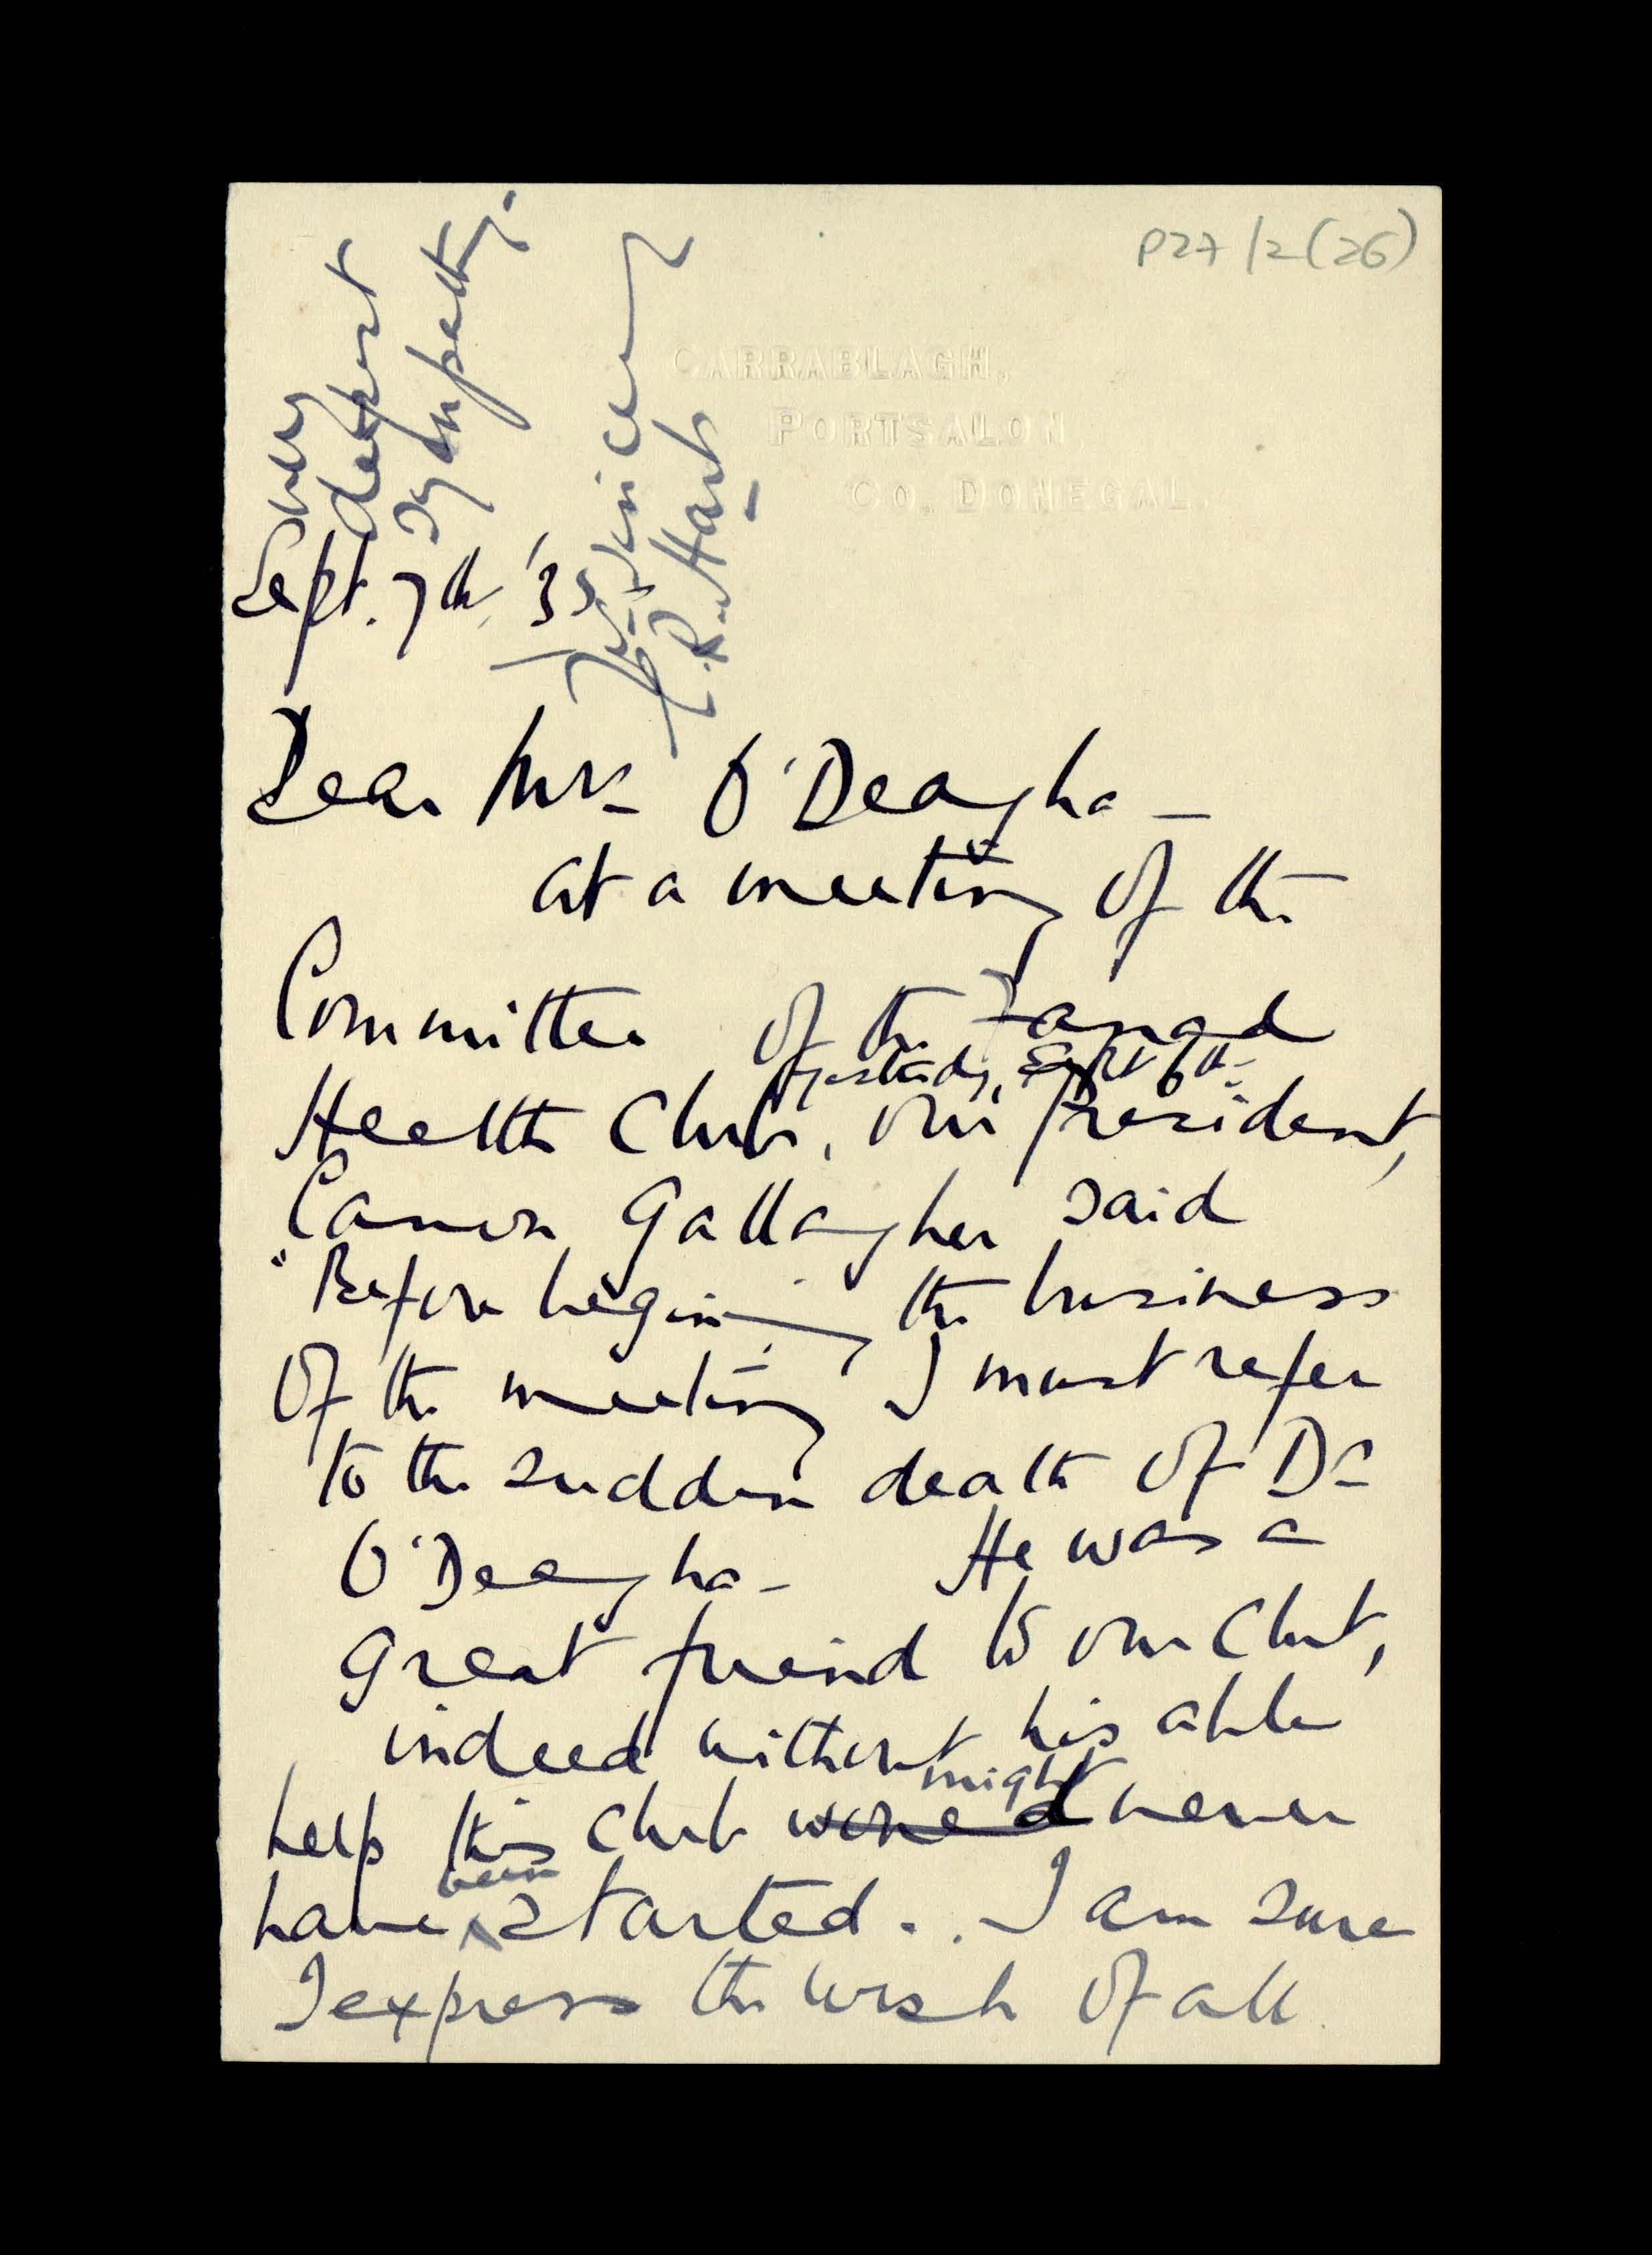 P27/2(26)
CARRABLAGH,
PORTSALON,
CO. DONEGAL.
Sept. 7th '35
Dear Mrs O'Deagha —
at a meeting of the
Committee of the Fanad
yesterday, Sept 6th
Health Club, our President,
Canon Gallagher said
"Before beginning the business
of the meeting I must refer
to the sudden death of Dr
O'Deagha — He was a
great friend to our Club,
indeed without his able
might
help this Club would never
been
have ^ started. . I am sure
I express the wish of all
very
deepest
sympathy.
sincerely
Hart